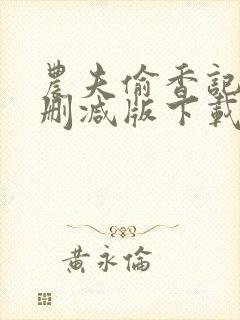 農夫偷香記
刪減版下載
黃永倫